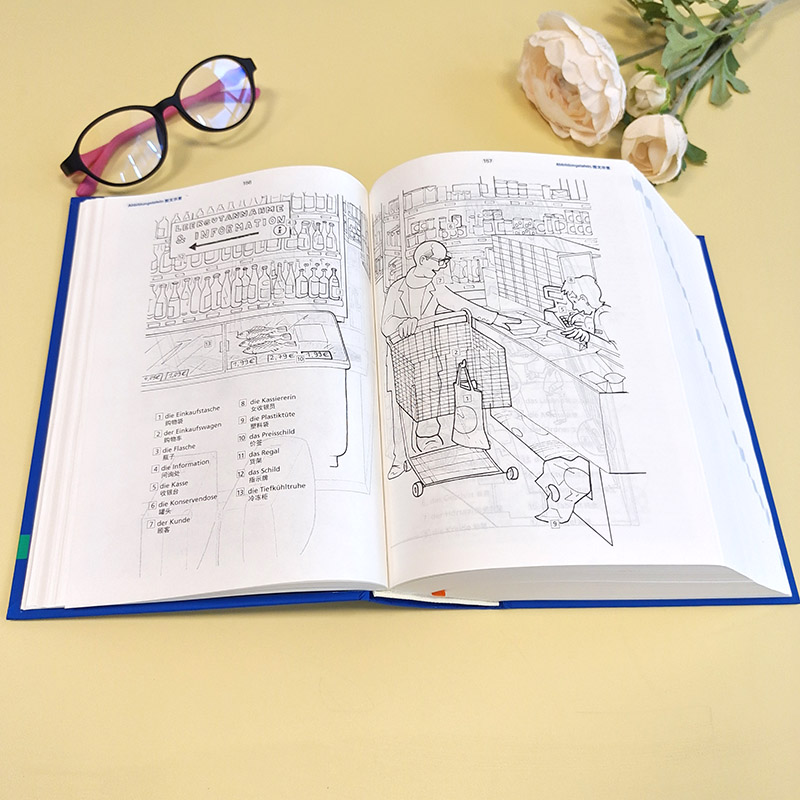 156
Abbildungstafeln 图文字表
LEERGUTANNAHME
& INFORMATION
i
13
7,99€ 2,79€ 10 1,99€
1 die Einkaufstasche
购物袋
2 der Einkaufswagen
购物车
3 die Flasche
瓶子
4 die Information
问询处
5 die Kasse
收银台
6 die Konservendose
罐头
7 der Kunde
顾客
8 die Kassiererin
女收银员
9 die Plastiktüte
塑料袋
10 das Preisschild
价签
11 das Regal
货架
12 das Schild
指示牌
13 die Tiefkühltruhe
冷冻柜
157
Abbildungstafeln
2
1
9